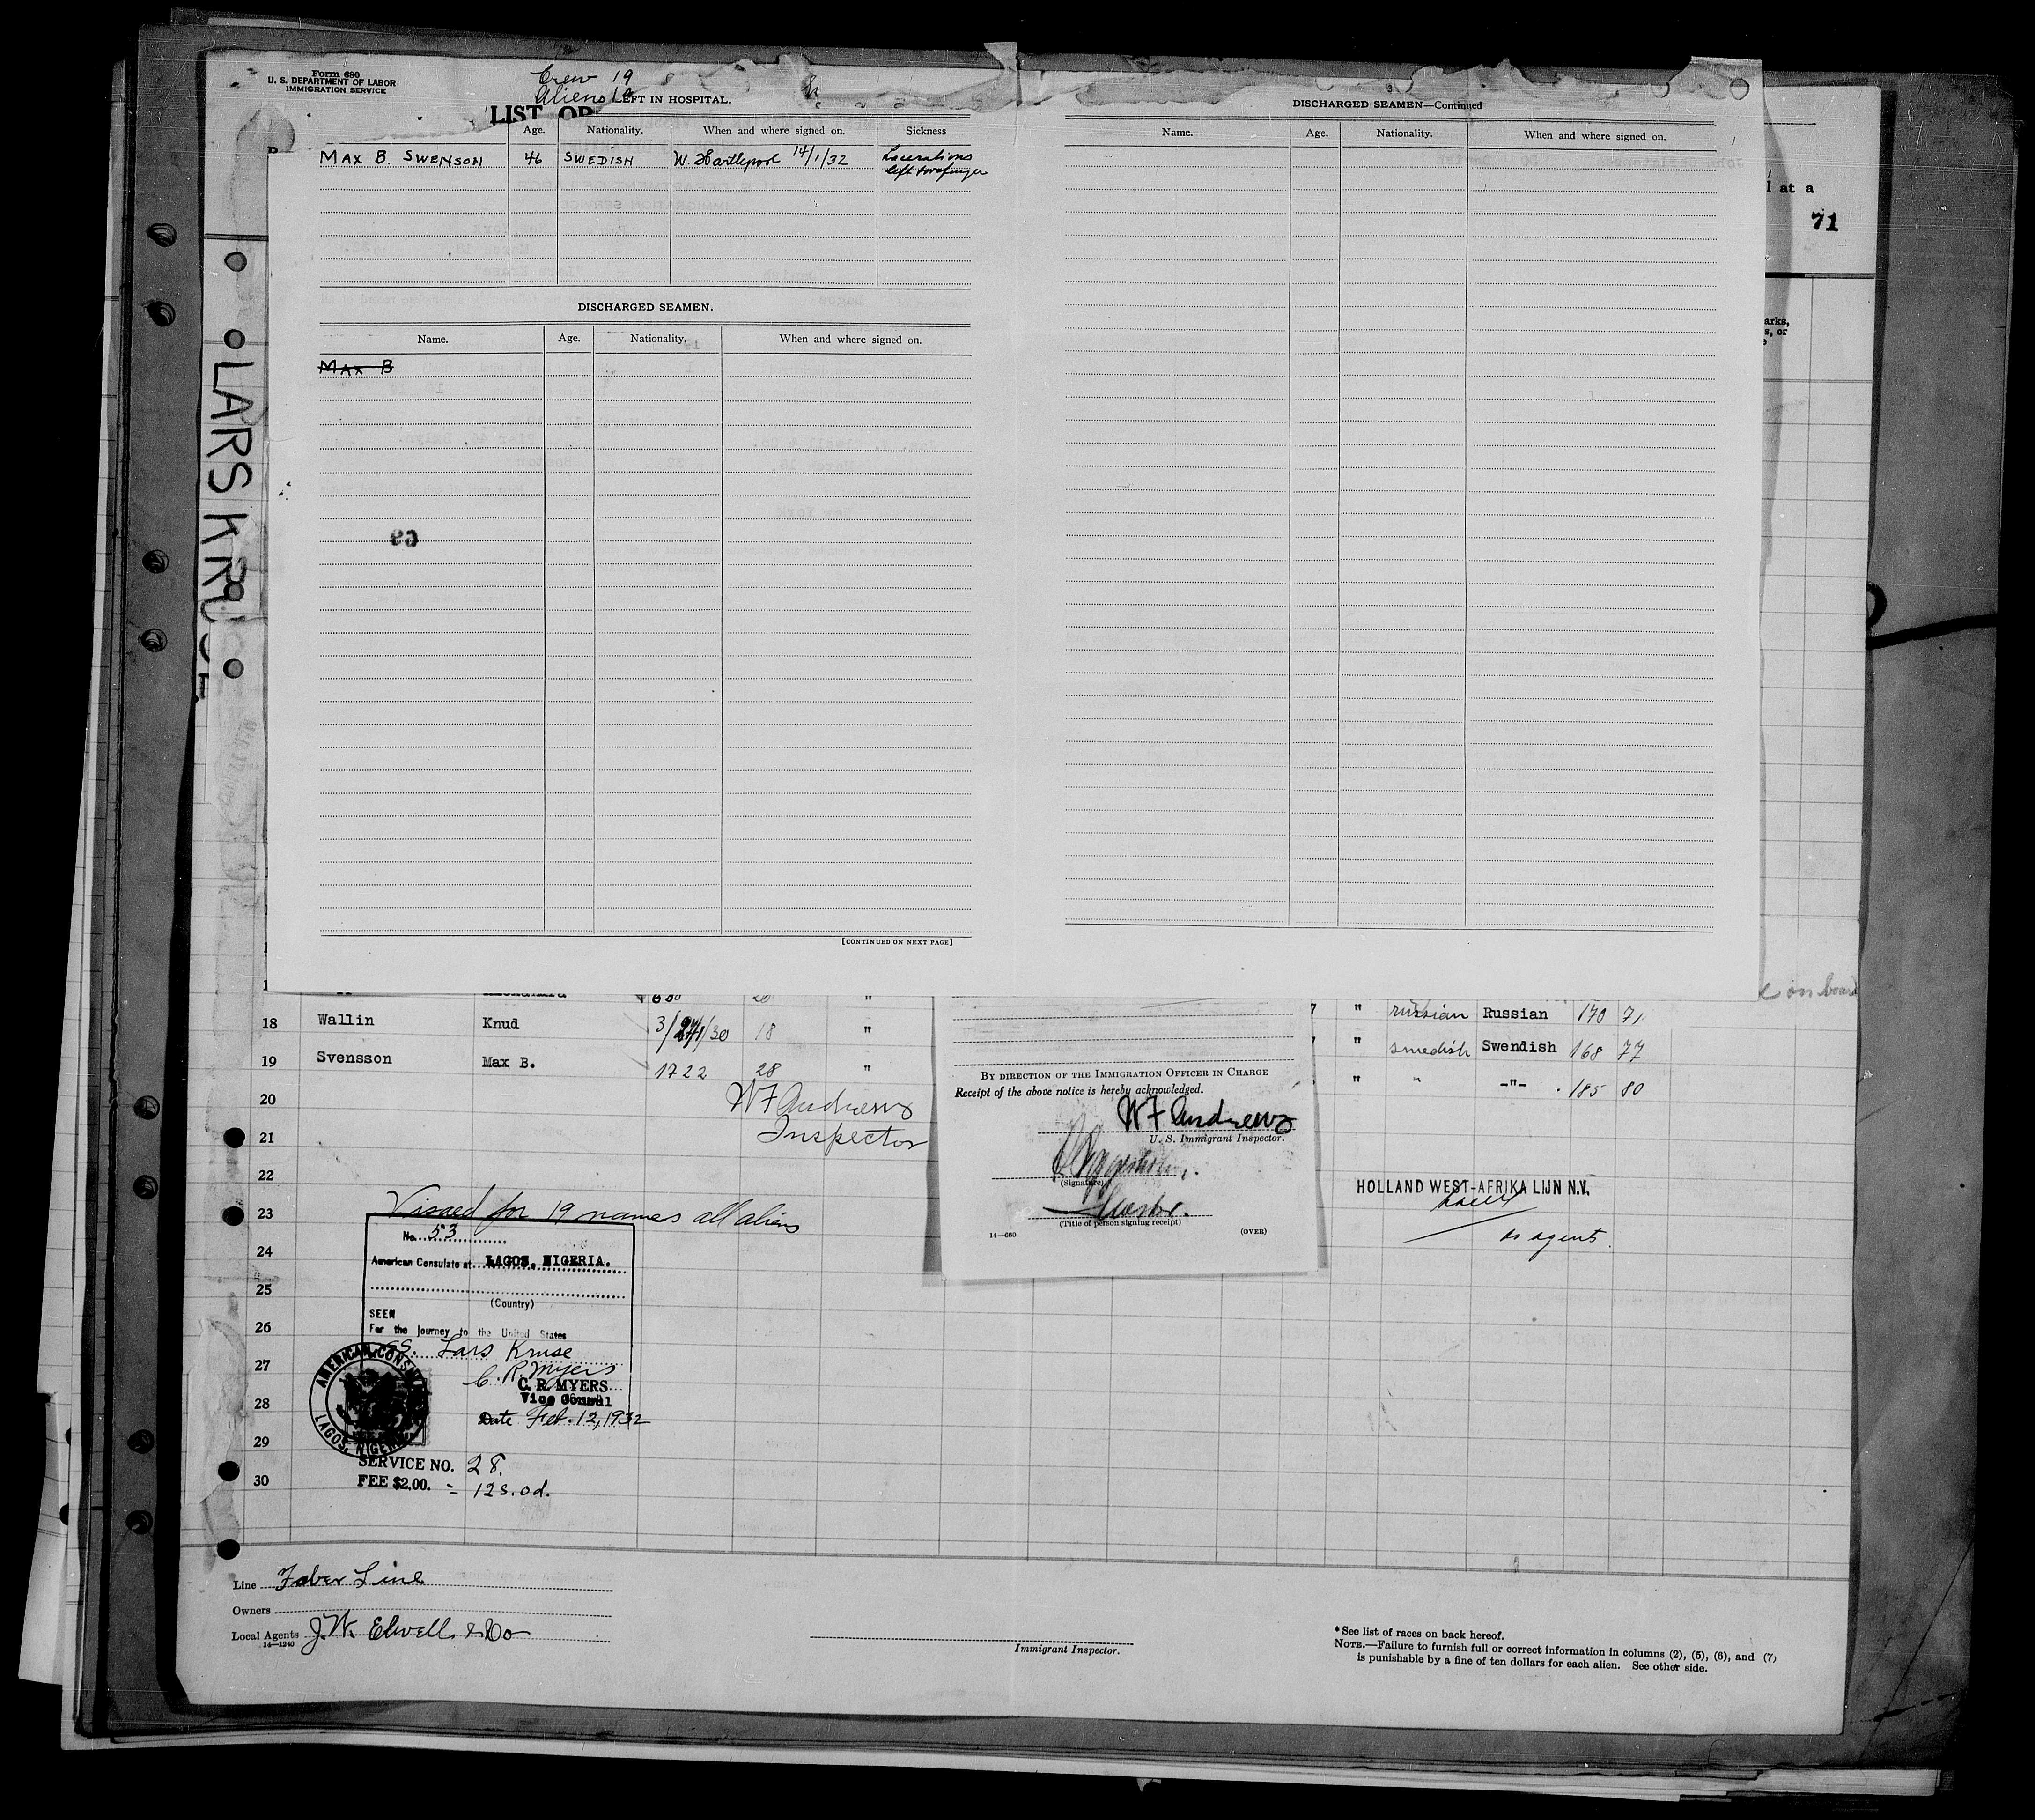 Form 680
U. S. DEPARTMENT OF LABOR
IMMIGRATION SERVICE
Crew 19
Aliens 19
LEFT IN HOSPITAL.
LIST OR
Age. Nationality. When and where signed on. Sickness
MAX B. SWENSON 46 SWEDISH W. Hartlepool 14/1/32 Lacerations
left forefinger
DISCHARGED SEAMEN.
Name. Age. Nationality. When and where signed on.
MAX B
[CONTINUED ON NEXT PAGE]
DISCHARGED SEAMEN—Continued
Name. Age. Nationality. When and where signed on.
l at a
71
arks,
s, or
LARS KRUSE
on board
7 " russian Russian 170 71
18 Wallin Knud 3/27/1/30 18 " " Swedish Swendish 168 77
19 Svensson Max B. 1722 28 " " " -"- 185 80
20
W F Andrews
21
Inspector
22
23
24
25
26
27
28
29
30
BY DIRECTION OF THE IMMIGRATION OFFICER IN CHARGE
Receipt of the above notice is hereby acknowledged.
W F Andrews
U. S. Immigrant Inspector.
(Signature)
(Title of person signing receipt)
14—660 (OVER)
HOLLAND WEST-AFRIKA LIJN N.V.
as agents.
Visaed for 19 names all aliens
No. 53
American Consulate at LAGOS, NIGERIA.
(Country)
SEEN
For the journey to the United States
SS. Lars Kruse
C. R. Myers
C. R. MYERS
Vice Consul
Date Feb. 12, 1932
AMERICAN CONSULATE
LAGOS, NIGERIA
SERVICE NO. 28.
FEE $2.00. = 12s. 0d.
Line Faber Line
Owners
Local Agents J. W. Elwell & Co
14—1240
Immigrant Inspector.
*See list of races on back hereof.
NOTE.—Failure to furnish full or correct information in columns (2), (5), (6), and (7)
is punishable by a fine of ten dollars for each alien. See other side.